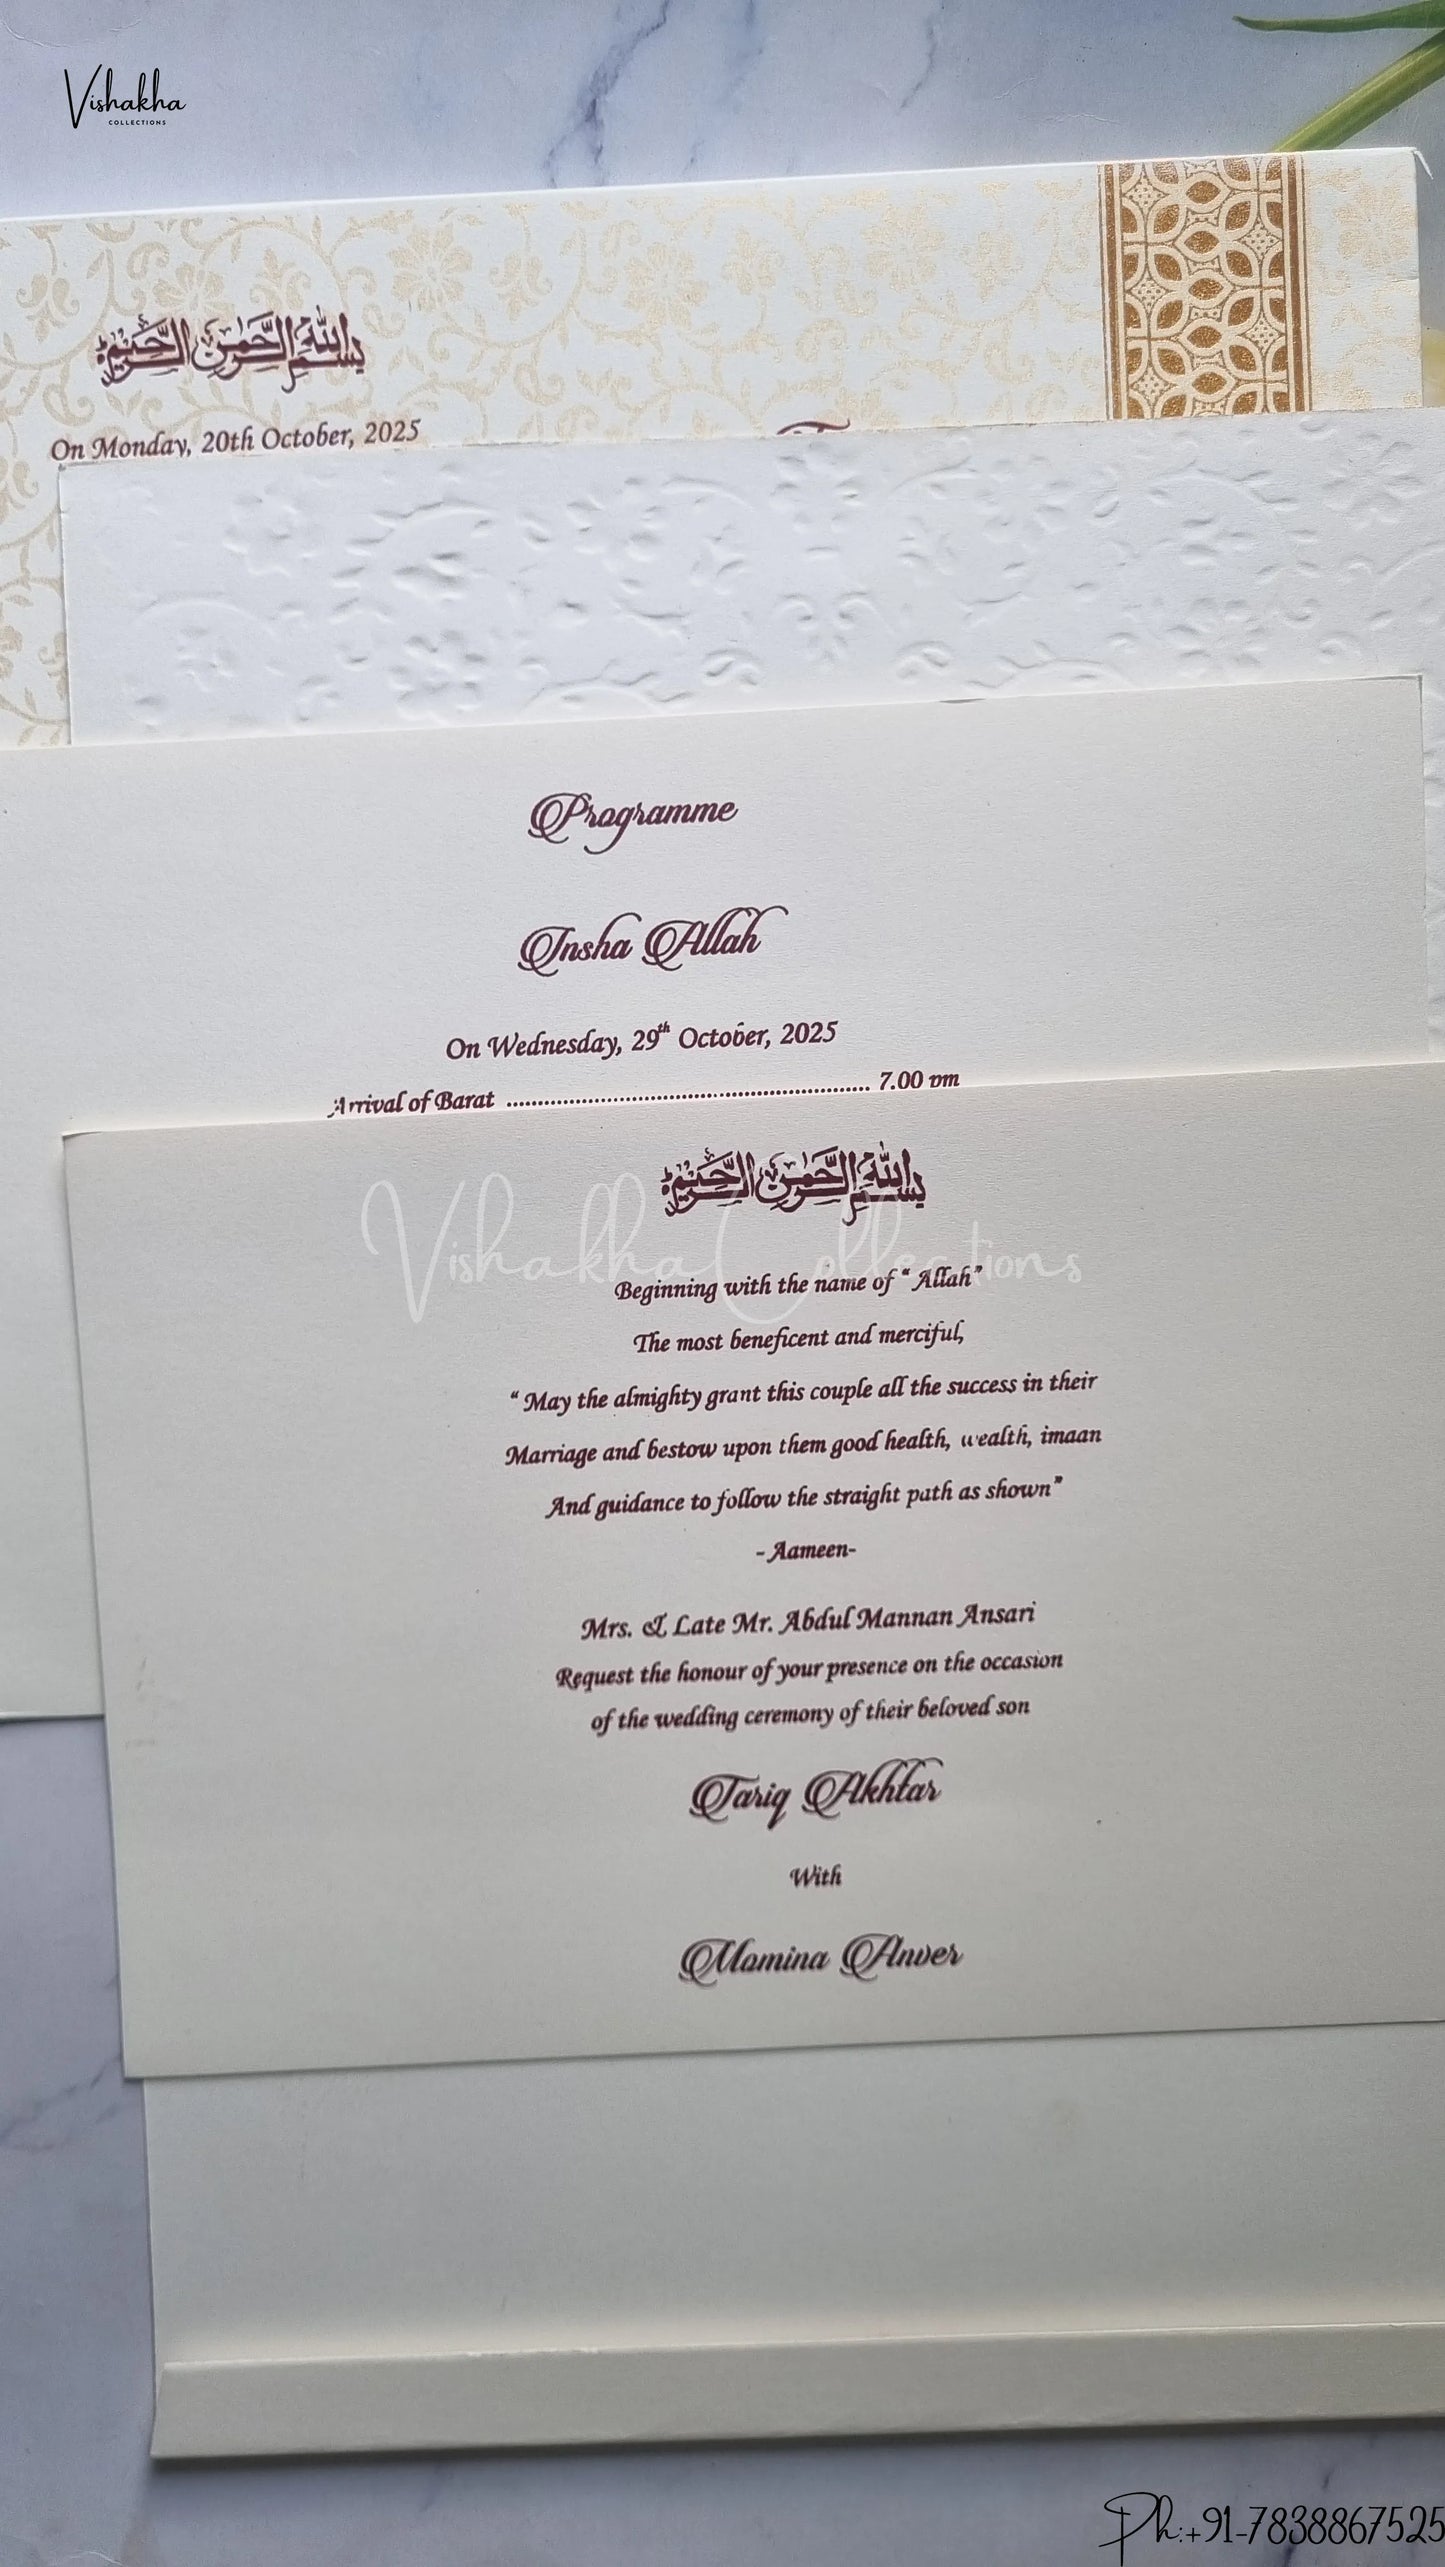 Vishakha
COLLECTIONS
بسم الله الرحمن الرحيم
On Monday, 20th October, 2025
Programme
Insha Allah
On Wednesday, 29th October, 2025
Arrival of Barat ........................................................................ 7.00 pm
بسم الله الرحمن الرحيم
Vishakha Collections
Beginning with the name of “ Allah”
The most beneficent and merciful,
“ May the almighty grant this couple all the success in their
Marriage and bestow upon them good health, wealth, imaan
And guidance to follow the straight path as shown”
- Aameen-
Mrs. & Late Mr. Abdul Mannan Ansari
Request the honour of your presence on the occasion
of the wedding ceremony of their beloved son
Tariq Akhtar
With
Momina Anver
Ph:+91-7838867525